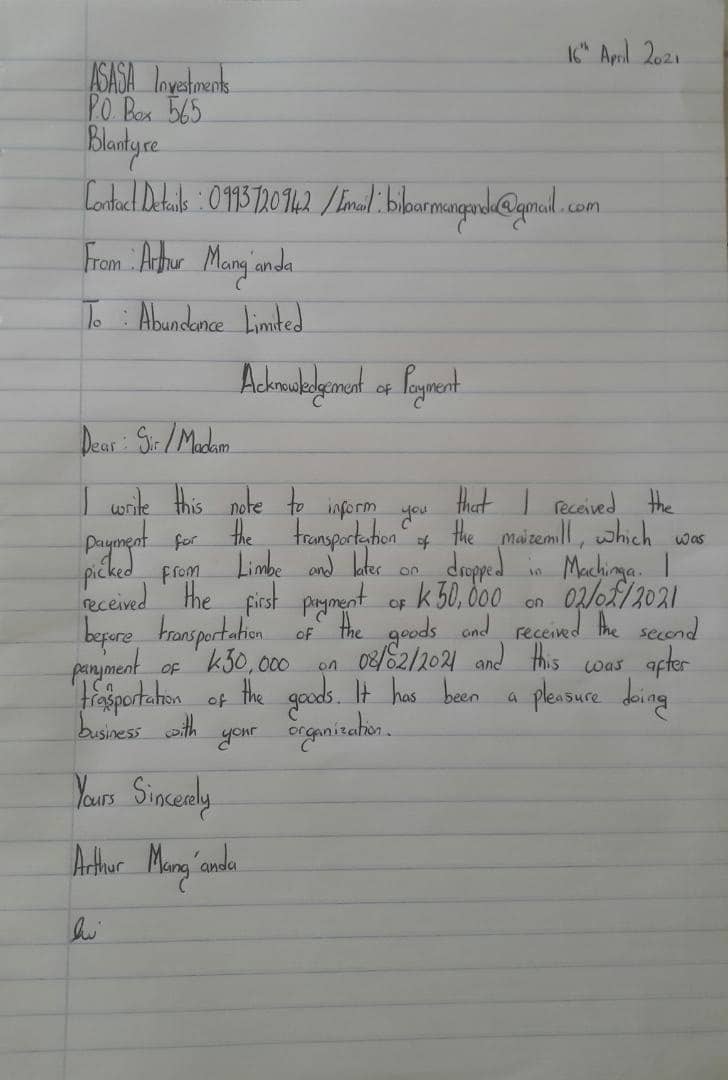 16th April 2021
ASASA Investments
P.O. Box 565
Blantyre
Contact Details : 0993720942 / Email : biloarmanganda@gmail.com
From : Arthur Mang'anda
To : Abundance Limited
Acknowledgement of Payment
Dear : Sir / Madam
I write this note to inform you that I received the
payment for the transportation of the maizemill, which was
picked from Limbe and later on dropped in Machinga. I
received the first payment of K50,000 on 02/02/2021
before transportation of the goods and received the second
payment of K30,000 on 08/02/2021 and this was after
trasportation of the goods. It has been a pleasure doing
business with your organization.
Yours Sincerely
Arthur Mang'anda